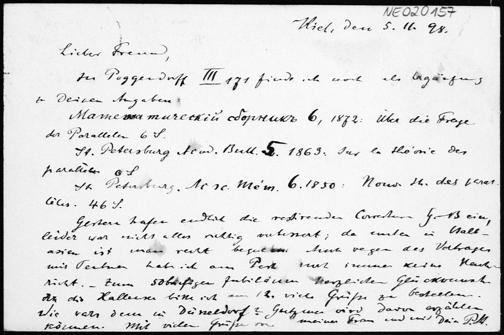 NE020157
Kiel, den 5. 11. 98.
Lieber Freund,
In Poggendorff III 171 finde ich noch als Ergänzung
zu Deinen Angaben
Математическій сборникъ 6, 1872: Über die Frage
der Parallelen 6 S.
St. Petersburg Acad. Bull. 5. 1863. Sur la théorie des
parallèles 6 S
St. Petersburg. Ac sc. Mém. 6. 1850: Nouv. th. des paral
lèles. 46 S.
Gestern trafen endlich die restirenden Correcturen ein,
leider war nicht alles richtig verbessert; da unten in
ist man recht Auch wegen des Vortrages
mit Teubner hab ich aus immer keine Nach
richt. – Zum Jubiläum herzlichen Glückwunsch
die Hallenser bitte ich viele Grüße zu bestellen.
Wie war's denn in Düsseldorf? Gutzmer wird davon erzählen
können. Mit vielen Grüßen von meiner Frau und Dein P. St.